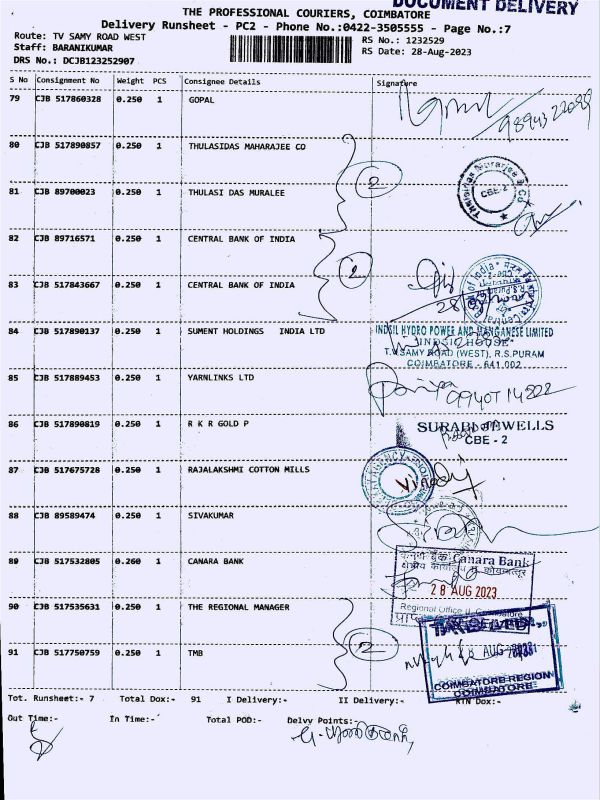 DOCUMENT DELIVERY
THE PROFESSIONAL COURIERS, COIMBATORE
Delivery Runsheet - PC2 - Phone No.:0422-3505555 - Page No.:7
Route: TV SAMY ROAD WEST
RS No.: 1232529
Staff: BARANIKUMAR
RS Date: 28-Aug-2023
DRS No.: DCJB123252907
S No Consignment No Weight PCS Consignee Details Signature
79 CJB 517860328 0.250 1 GOPAL
80 CJB 517890857 0.250 1 THULASIDAS MAHARAJEE CO
2
CBE-2
81 CJB 89700023 0.250 1 THULASI DAS MURALEE
82 CJB 89716571 0.250 1 CENTRAL BANK OF INDIA
2
83 CJB 517843667 0.250 1 CENTRAL BANK OF INDIA
84 CJB 517890137 0.250 1 SUMENT HOLDINGS INDIA LTD
INDSIL HYDRO POWER AND MANGANESE LIMITED
INDSIL HOUSE
T.V.SAMY ROAD (WEST), R.S.PURAM
COIMBATORE - 641 002
85 CJB 517889453 0.250 1 YARNLINKS LTD
86 CJB 517890819 0.250 1 R K R GOLD P
SURABI JEWELLS
CBE - 2
87 CJB 517675728 0.250 1 RAJALAKSHMI COTTON MILLS
88 CJB 89589474 0.250 1 SIVAKUMAR
89 CJB 517532805 0.260 1 CANARA BANK
Canara Bank
28 AUG 2023
Regional Office
90 CJB 517535631 0.250 1 THE REGIONAL MANAGER
2
91 CJB 517750759 0.250 1 TMB
AUG
COIMBATORE REGION
COIMBATORE
Tot. Runsheet:- 7 Total Dox:- 91 I Delivery:- II Delivery:- RTN Dox:-
Out Time:- In Time:- Total POD:- Delvy Points:-